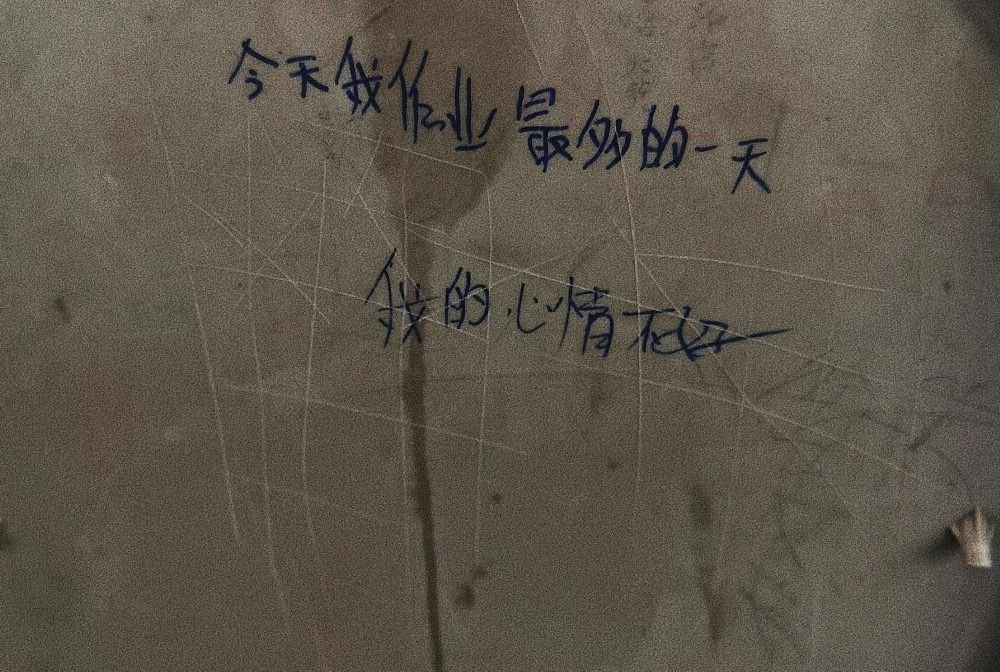 今天我作业最多的一天
我的心情不好